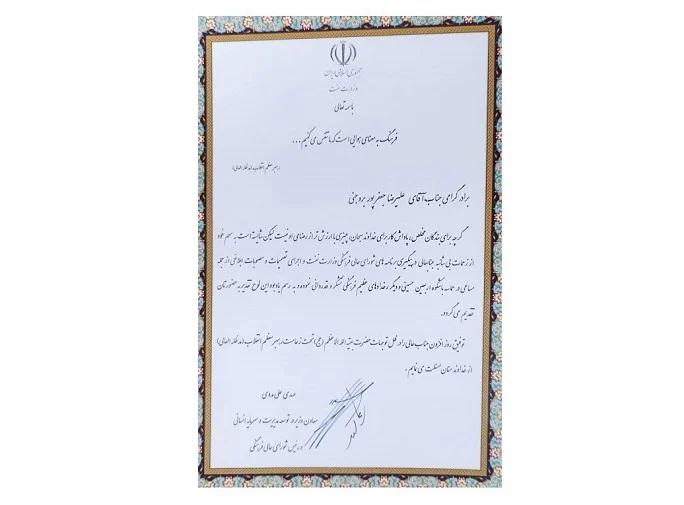 جمهوری اسلامی ایران
وزارت نفت
باسمه تعالی
فرهنگ به معنای هوایی است که ما تنفس می کنیم ...
رهبر معظم انقلاب (مد ظله العالی)
برادر گرامی جناب آقای علیرضا جعفرپور بروجنی
گرچه برای بندگان مخلص، پاداش کار برای خداوند سبحان، چیزی با ارزش تر از رضای او نیست لیکن شایسته است به سهم خود
از زحمات بی شائبه جنابعالی در پیگیری برنامه های شورای عالی فرهنگی وزارت نفت و اجرای تصمیمات و مصوبات ابلاغی از جمله
مساعی در حماسه باشکوه اربعین حسینی و دیگر رخدادهای عظیم فرهنگی تشکر و قدردانی نموده و به رسم یادبود این لوح تقدیر به حضورتان
تقدیم می گردد.
توفیق روز افزون جناب عالی را در ظل توجهات حضرت بقیه الله الاعظم (عج) تحت زعامت رهبر معظم انقلاب (مد ظله العالی)
از خداوند منان مسئلت می نمایم .
مهدی علی مددی
معاون وزیر در توسعه مدیریت و سرمایه انسانی
و رئیس شورای عالی فرهنگی